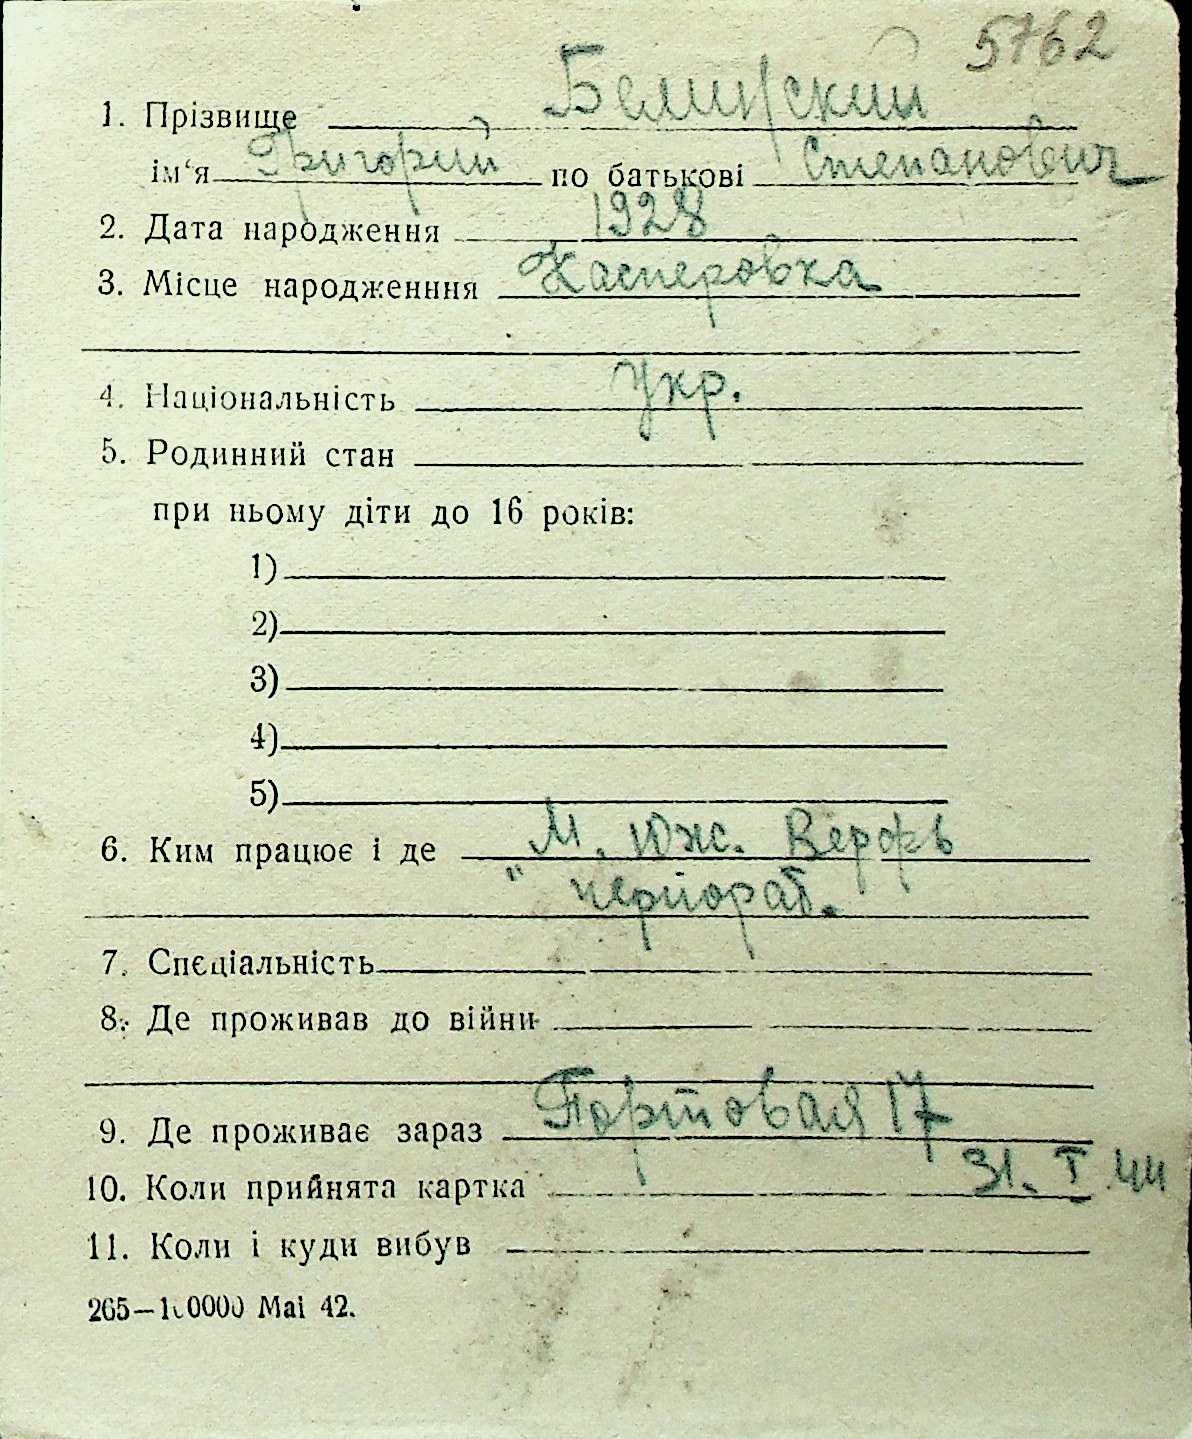 5762
1. Прізвище Белинский
ім‘я Григорий по батькові Степанович
2. Дата народження 1928
3. Місце народженння Касперовка
4. Національність Укр.
5. Родинний стан
при ньому діти до 16 років:
1)
2)
3)
4)
5)
6. Ким працює і де „М. Юж. Верфь
чернораб.
7. Спеціальність
8. Де проживав до війни
9. Де проживає зараз Портовая 17
10. Коли прийнята картка 31. I 44
11. Коли і куди вибув
265—100000 Mai 42.